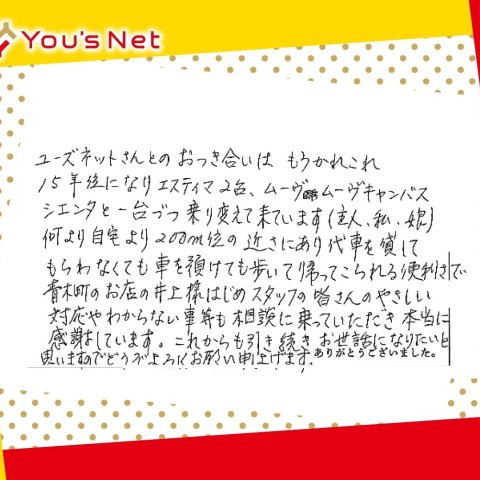 You's Net
ユーズネットさんとのおつき合いは もうかれこれ
15年位になりエスティマ2台、ムーヴ ムーヴキャンバス
シエンタと一台づつ乗り変えて来ています(主人、私、娘)
何より自宅より200m位の近さにあり代車を貸して
もらわなくても車を預けても歩いて帰ってこられる便利さで
青木町のお店の井上様はじめスタッフの皆さんのやさしい
対応やわからない事等も相談に乗っていただき本当に
感謝しています。これからも引き続きお世話になりたいと
思いますのでどうぞよろしくお願い申上げます。ありがとうございました。